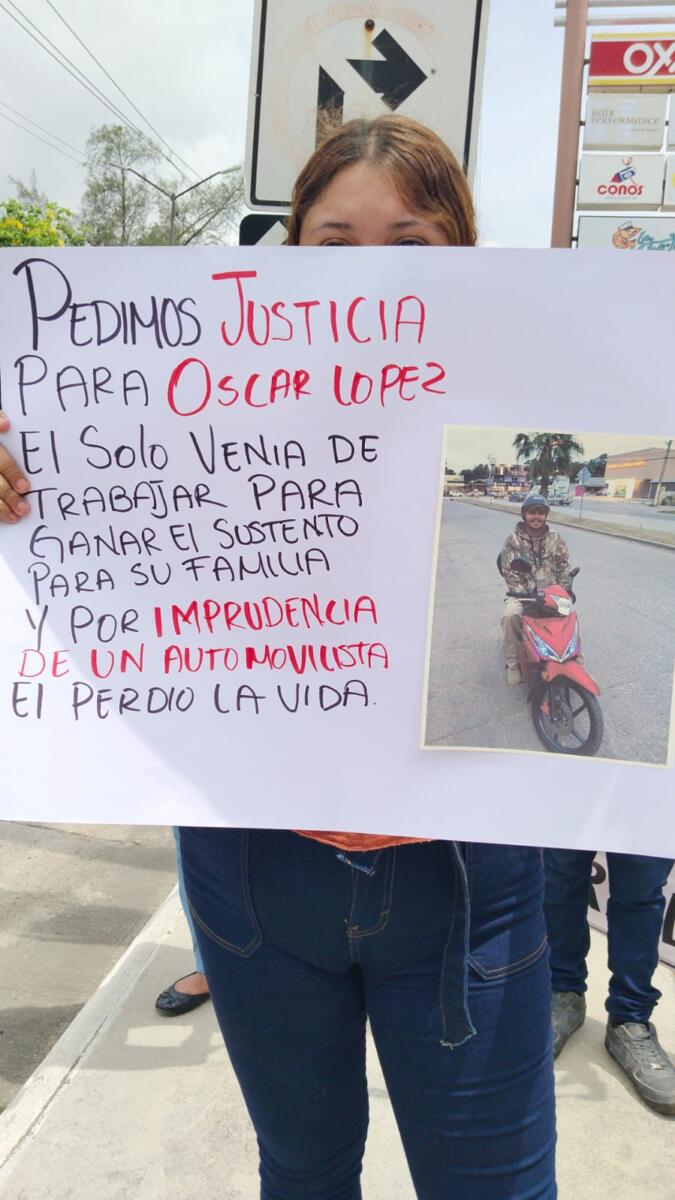 PEDIMOS JUSTICIA
PARA OSCAR LOPEZ
El Solo VENIA DE
TRABAJAR PARA
GANAR El SUSTENTO
PARA SU FAMILIA
Y POR IMPRUDENCIA
DE UN AUTOMOVILISTA
El PERDIO LA VIDA.
OXX
HAIR
PERFORMANCE
CONOS